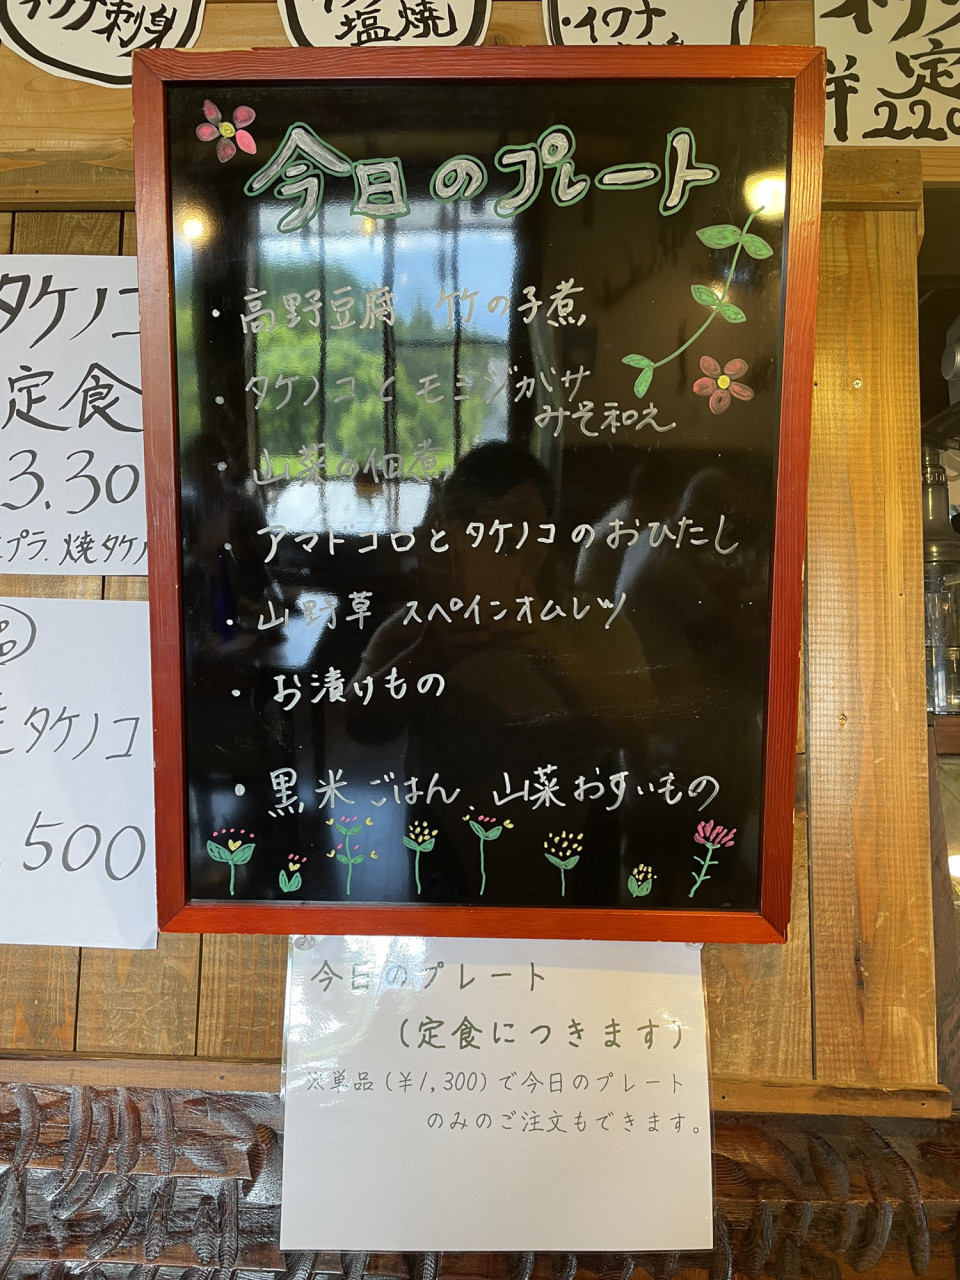 イワナ刺身
塩焼
・イワナ
定
220
今日のプレート
・高野豆腐 竹の子煮
・タケノコとモミジガサ
みそ和え
・山菜の佃煮
・アマドコロとタケノコのおひたし
・山野草 スペインオムレツ
・お漬けもの
・黒米ごはん、山菜おすいもの
タケノコ
定食
3.30
プラ.焼タケノ
タケノコ
500
今日のプレート
(定食につきます)
※単品(¥1,300)で今日のプレート
のみのご注文もできます。